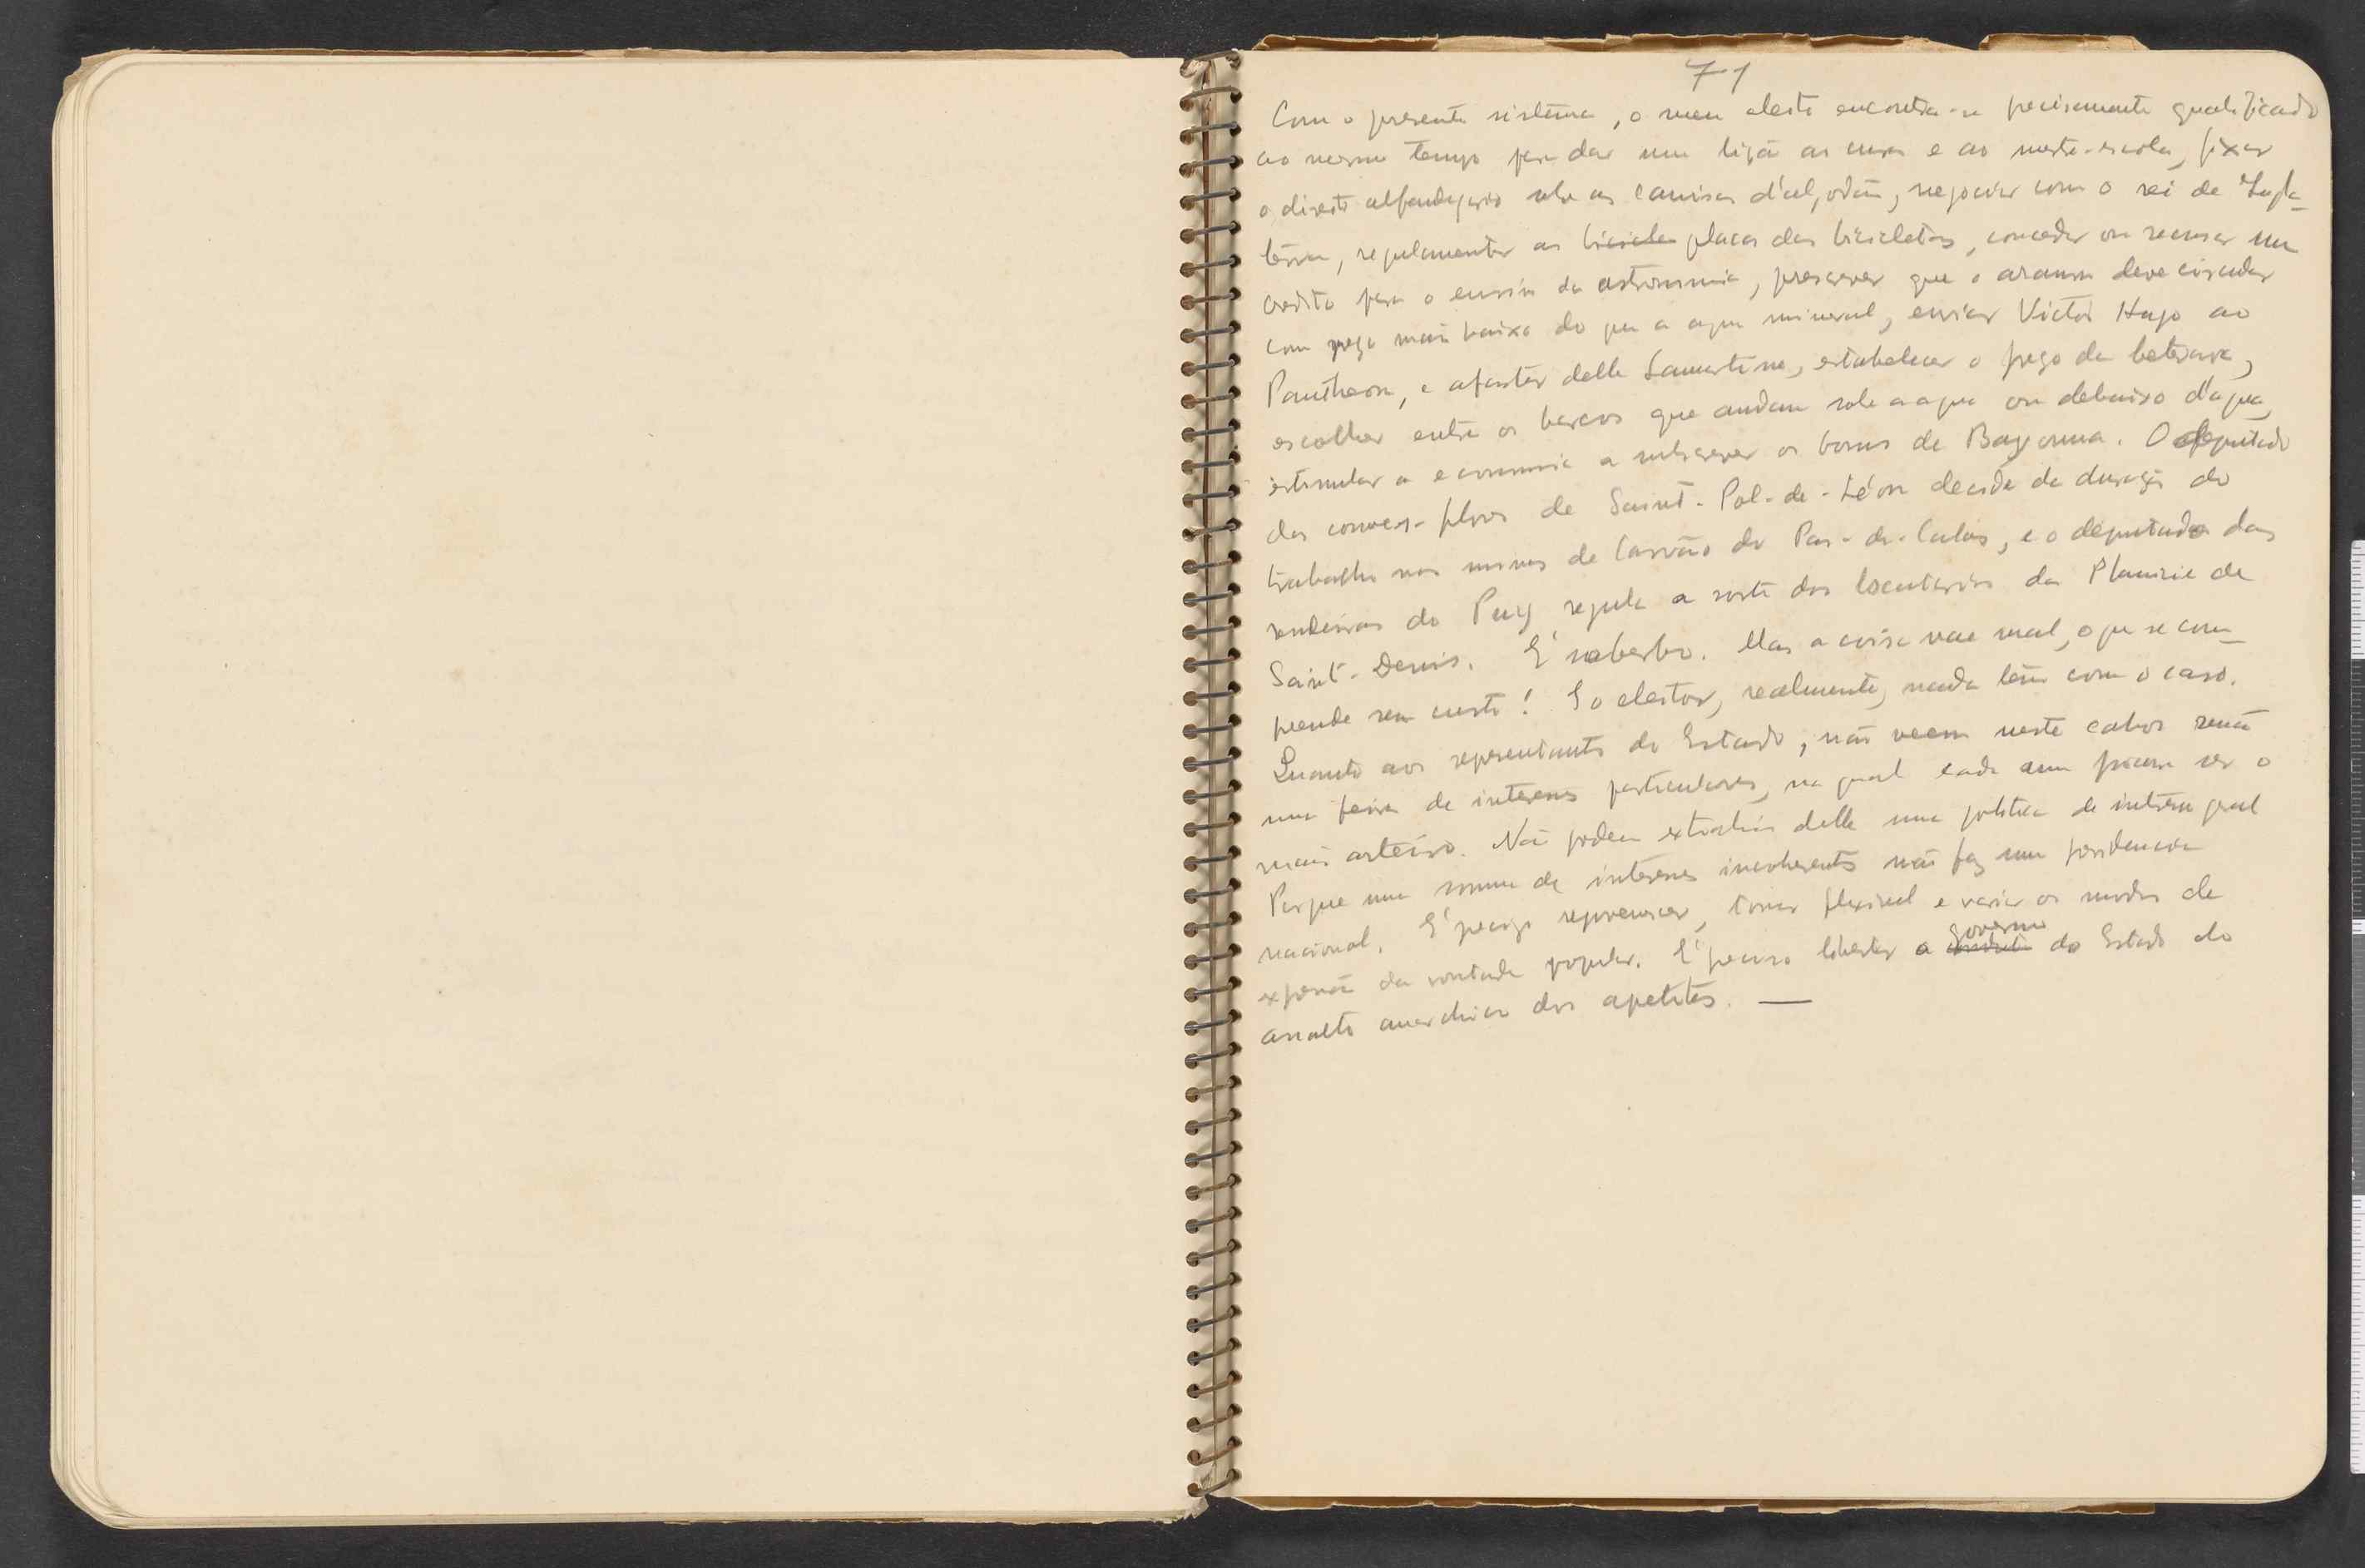 71
Com o presente sistema, o meu eleito encontra-se precisamente qualificado
ao mesmo tempo para dar uma lição ao cura e ao mestre-escola, fixar
o direito alfandegario sobre as camisas d'algodão, negociar com o rei de Ingla-
terra, regulamentar as bicicletas placas das bicicletas, conceder ou recusar um
credito para o ensino da astronomia, prescrever que o aramon deve circular
com preço mais baixo do que a agua mineral, enviar Victor Hugo ao
Pantheon, e afastar delle Lamartine, estabelecer o preço da beterava,
escolher entre os barcos que andam sobre a agua ou debaixo d'agua,
estimular a economia a subscrever os bonus de Bayonna. O deputado
das couves-flores de Saint-Pol-de-Léon decide da duração do
trabalho nas minas de carvão do Pas-de-Calais, e o deputado das
rendeiras do Puy regula a sorte dos locatarios da Planicie de
Saint-Denis. É soberbo. Mas a coisa vae mal, o que se com-
preende sem custo! E o eleitor, realmente, nada tem com o caso.
Quanto aos representantes do Estado, não veem neste cahos senão
uma feira de interesses particulares, na qual cada um procura ser o
mais arteiro. Não podem extrahir delle uma politica de interesse geral
Porque uma somma de interesses incoherentes não faz uma providencia
nacional. É preciso rejuvenescer, tornar flexivel e variar os modos de
expressão da vontade popular. É preciso libertar o governo do Estado do
assalto anarchico dos apetites. —